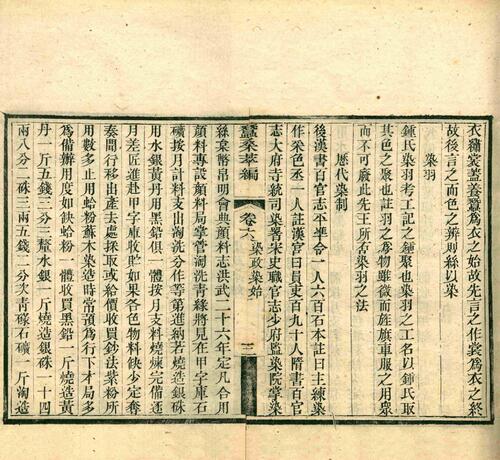 衣繡裳蓋養蠶為衣之始故先言之作裳為衣之終
故後言之而色之辨則繇以染
染羽
鍾氏染羽考工記之鍾聚也染羽之工名以鍾氏取
其色之聚也註羽之為物雖微而旌旗車服之用衆
而不可廢此先王所吉染羽之法
歷代染制
後漢書百官志平準令一人六百石本註曰主練染
作采色丞一人註漢官曰員吏百九十人隋書百官
志大府寺統司染署宋史職官志少府監染院掌染
絲枲幣帛明會典顏料志洪武二十六年定凡合用
蠶桑萃編
卷六
染政
染始
三
顏料專設顏料局掌管淘洗青綠將見在甲字庫石
礦按月計料支出淘洗分作等第進納若燒造銀硃
用水銀黃丹用黑鉛俱一體按月支料燒煉完備逐
月差匠進赴甲字庫收貯如果各色物料缺少定奪
奏聞行移出產去處採取或給價收買鈔法紫粉所
用數多止用蛤粉蘇木染造時常預為行下本局多
為備辦用度如缺蛤粉一體收買黑鉛一斤燒造黃
丹一斤五錢三分三釐水銀一斤燒造銀硃一十四
兩八分二硃三兩五錢二分次青碌石礦一斤淘造